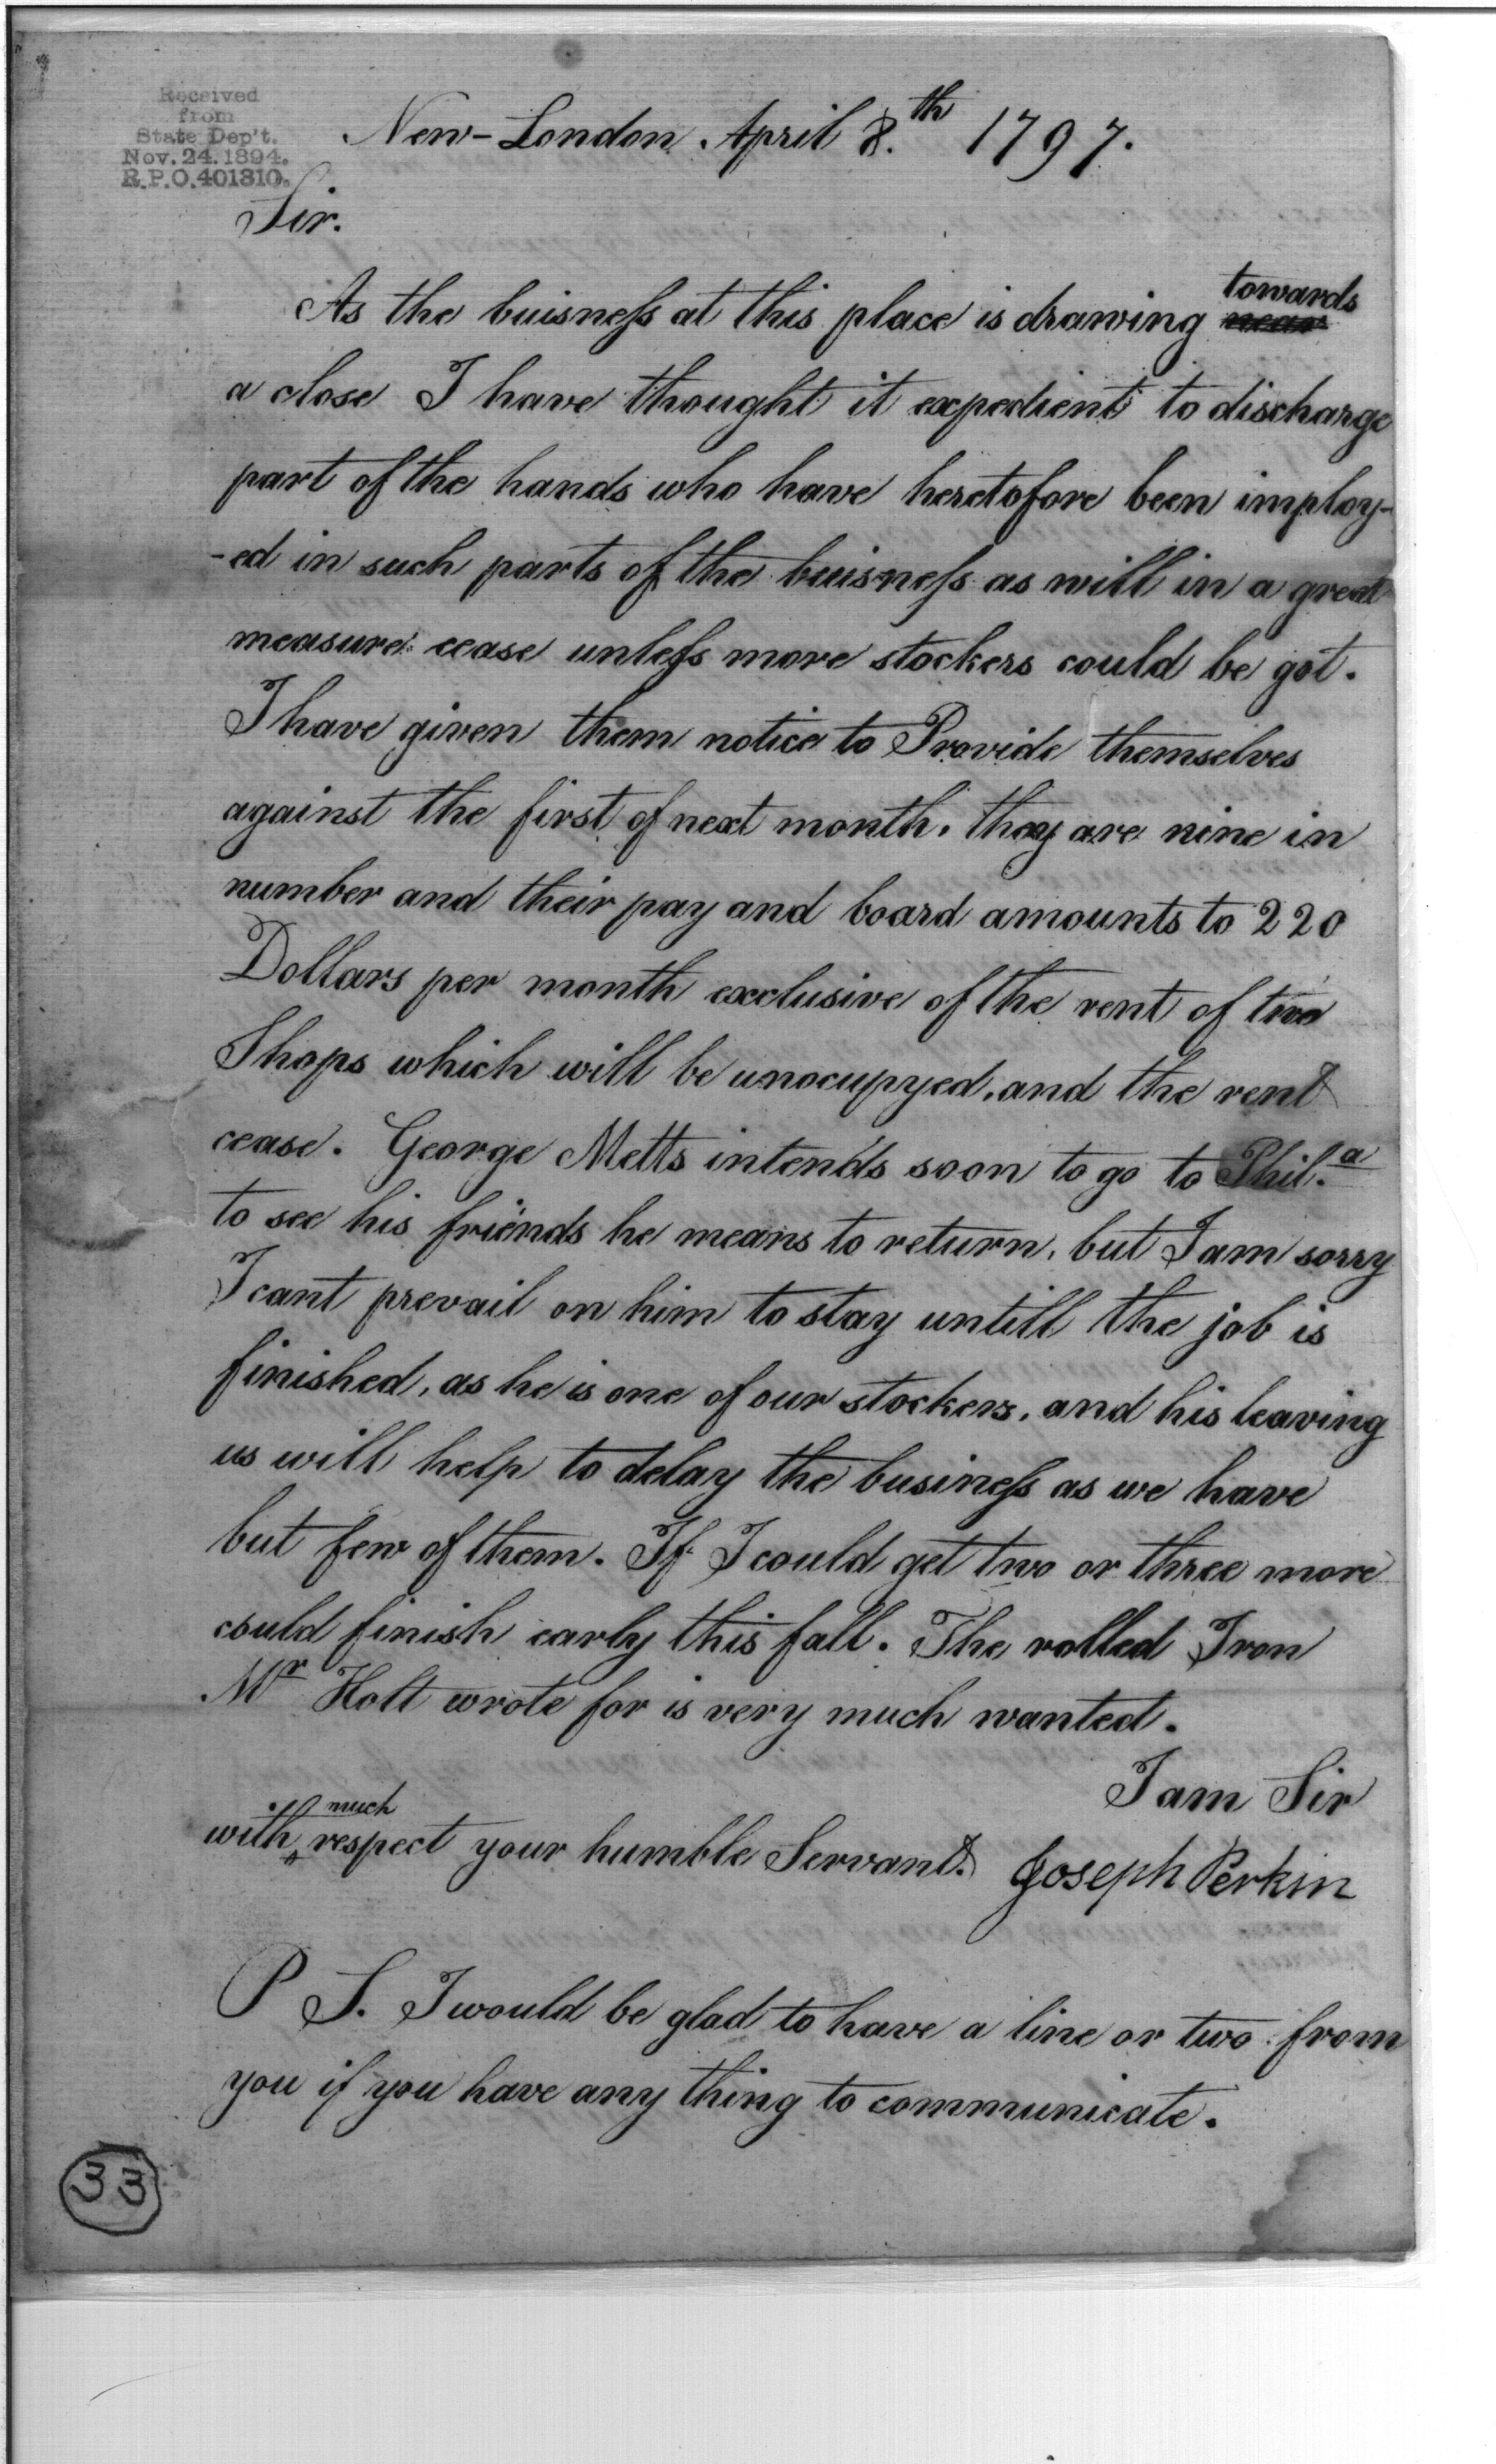 Received
from
State Dep't.
Nov. 24. 1894.
R.P.O. 401810.
New-London April 8.th 1797.
Sir.
As the buisness at this place is drawing near towards
a close I have thought it expedient to discharge
part of the hands who have heretofore been imploy-
-ed in such parts of the buisness as will in a great
measure cease unless more stockers could be got.
I have given them notice to Provide themselves
against the first of next month. they are nine in
number and their pay and board amounts to 220
Dollars per month exclusive of the rent of two
Shops which will be unocupyed, and the rent
cease. George Metts intends soon to go to Phil.a
to see his friends he means to return, but I am sorry
I cant prevail on him to stay untill the job is
finished, as he is one of our stockers, and his leaving
us will help to delay the business as we have
but few of them. If I could get two or three more
could finish early this fall. The rolled Iron
Mr Holt wrote for is very much wanted.
I am Sir
with much respect your humble Servant. Joseph Perkin
P S. I would be glad to have a line or two from
you if you have any thing to communicate.
33